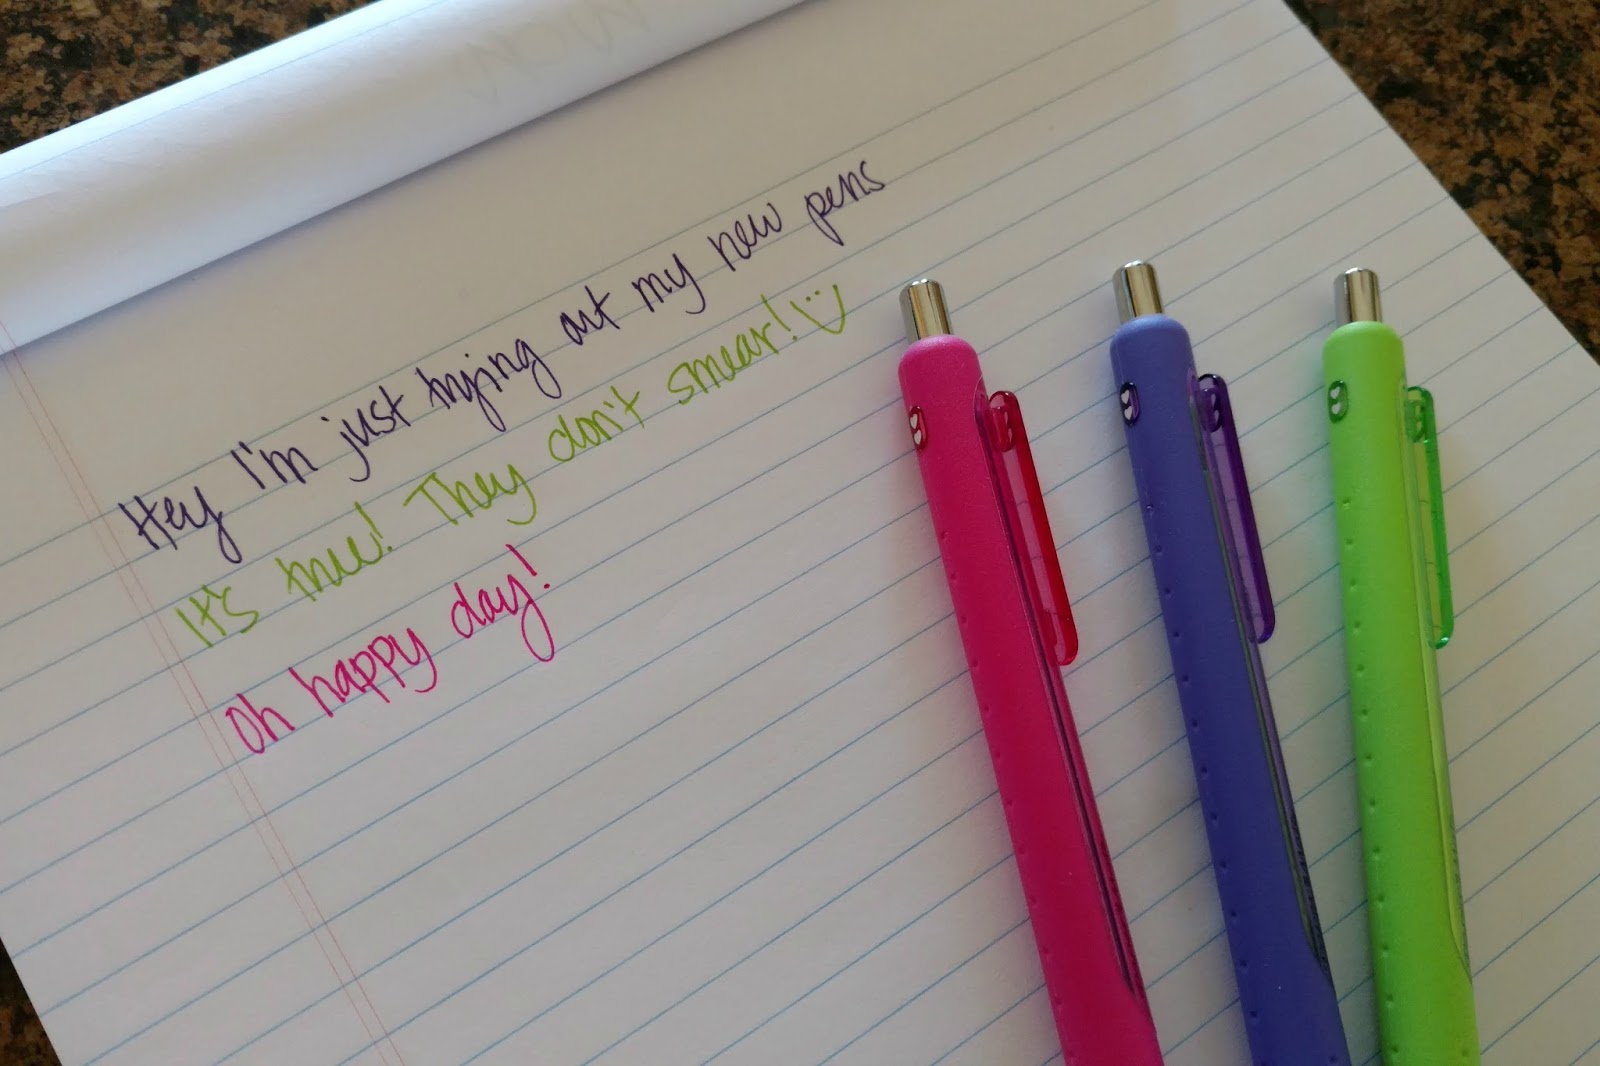 Hey I'm just trying out my new pens
It's true! They don't smear! :)
oh happy day!